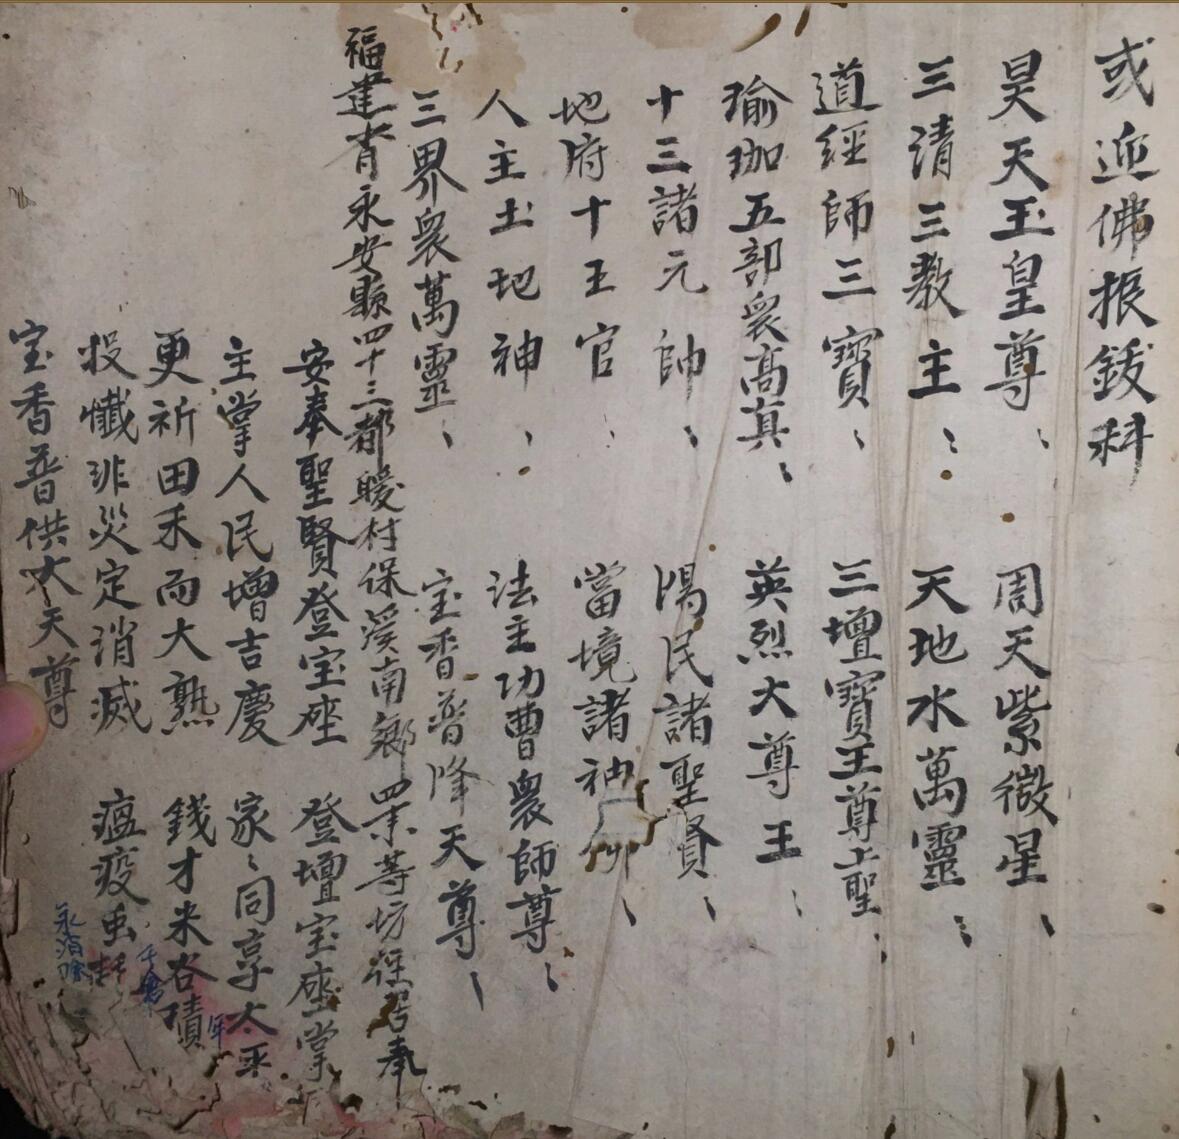 或迎佛振鈸科
昊天玉皇尊、 周天紫微星、
三清三教主、 天地水萬靈、
道經師三寶、 三壇寶王尊上聖、
瑜珈五部眾高真、 英烈大尊王、
十三諸元帥、 陽民諸聖賢、
地府十王官、 當境諸神
人主土地神、 法主功曹眾師尊、
三界眾萬靈、 宝香普降天尊、
福建省永安縣四十三都暖村保溪南鄉四業等坊
安奉聖賢登宝座 登壇宝座掌
主掌人民增吉慶 家、同享太平
更祈田禾而大熟 錢才米谷積
投懺非災定消滅 瘟疫虫耗
宝香普供大天尊
年
千倉
永消除